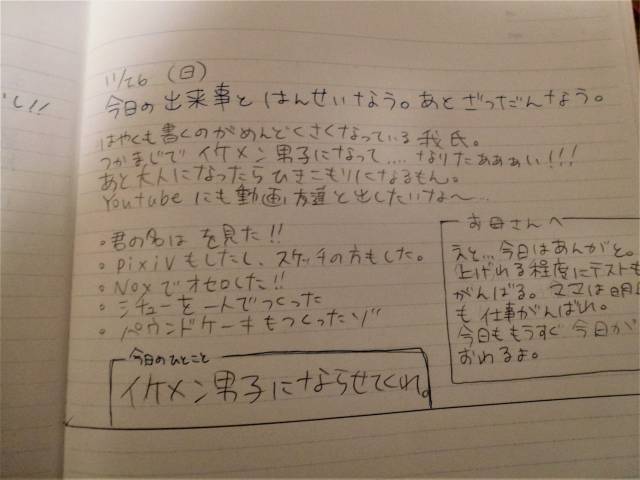 し!!
11/26 (日)
今日の出来事と はんせいなう。あと ざつだんなう。
はやくも書くのがめんどくさくなっている我氏。
つかまじで イケメン男子になって.... なりたぁぁぁい!!!
あと大人になったら ひきこもりになるもん。
Youtube にも動画 友達と出したいな〜...
。君の名は を見た!!
。pixivもしたし、スケッチの方もした。
。Noxでオセロした!!
。シチューを一人でつくった
。パウンドケーキもつくったゾ
今日のひとこと
イケメン男子にならせてくれ。
お母さんへ
えと... 今日はあんがと。
上げれる程度にテストも
がんばる。ママは明
も 仕事がんばれ。
今日も もうすぐ 今日が
おわるよ。